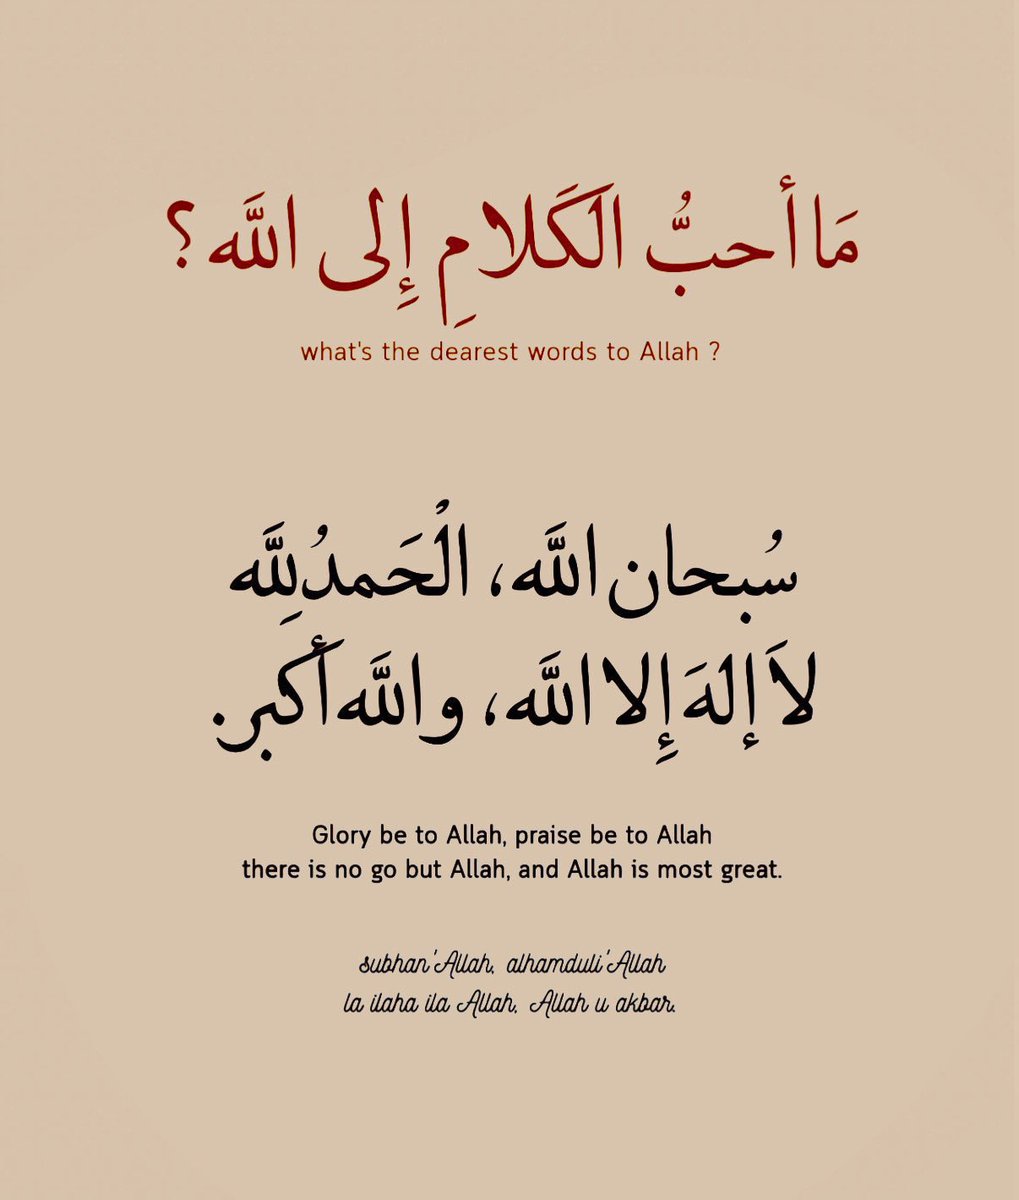 مَا أحبُّ الَكَلامِ إِلى اللَّه؟
what's the dearest words to Allah ?
سُبحان اللَّه، الْحَمدُلِلَّه
لاَ إلهَ إِلا اللَّه، واللَّه أَكبر.
Glory be to Allah, praise be to Allah
there is no go but Allah, and Allah is most great.
subhan'Allah, alhamduli'Allah
la ilaha ila Allah, Allah u akbar.